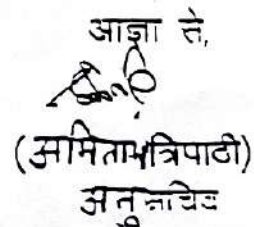 आज्ञा से,
(अमिताभ त्रिपाठी)
अनु सचिव